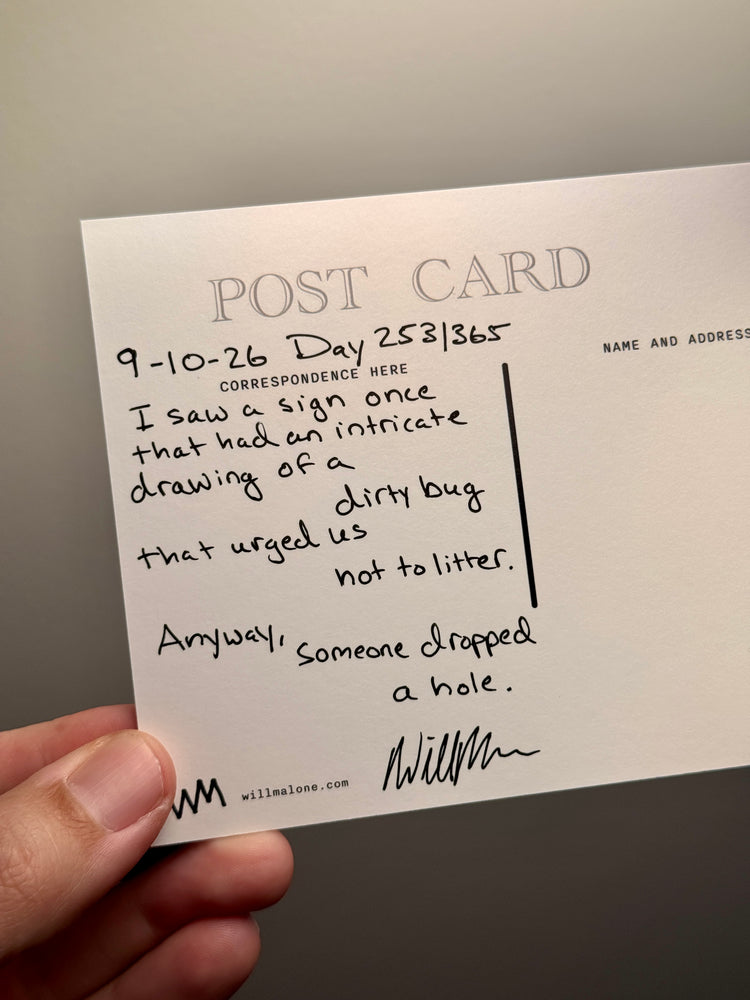 POST CARD
9-10-26 Day 253/365
CORRESPONDENCE HERE
NAME AND ADDRESS
I saw a sign once
that had an intricate
drawing of a
dirty bug
that urged us
not to litter.
Anyway, someone dropped
a hole.
WM willmalone.com